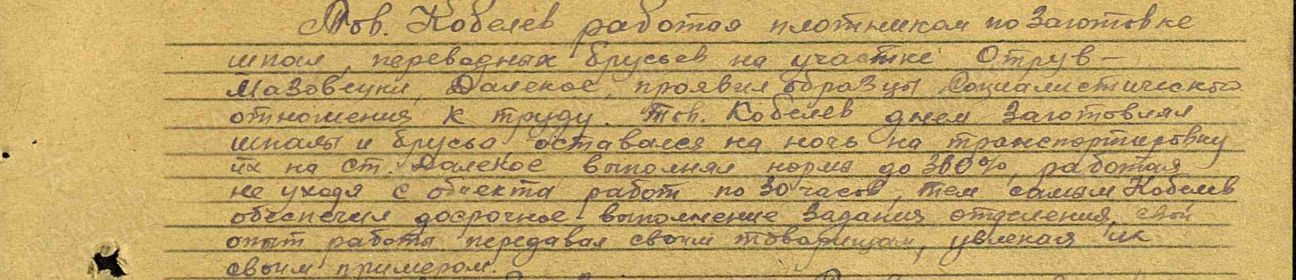 Тов. Кобелев работая плотником по заготовке
шпал, переводных брусьев на участке Отрув-
Мазовецки, Далекое, проявил образцы социалистического
отношения к труду. Тов. Кобелев днем заготовлял
шпалы и брусья оставался на ночь на транспортировку
их на ст. Далекое выполнял нормы до 300%, работая
не уходя с объекта работ по 30 часов, тем самым Кобелев
обеспечил досрочное выполнение задания отделения, свой
опыт работы передавал своим товарищам, увлекая их
своим примером.